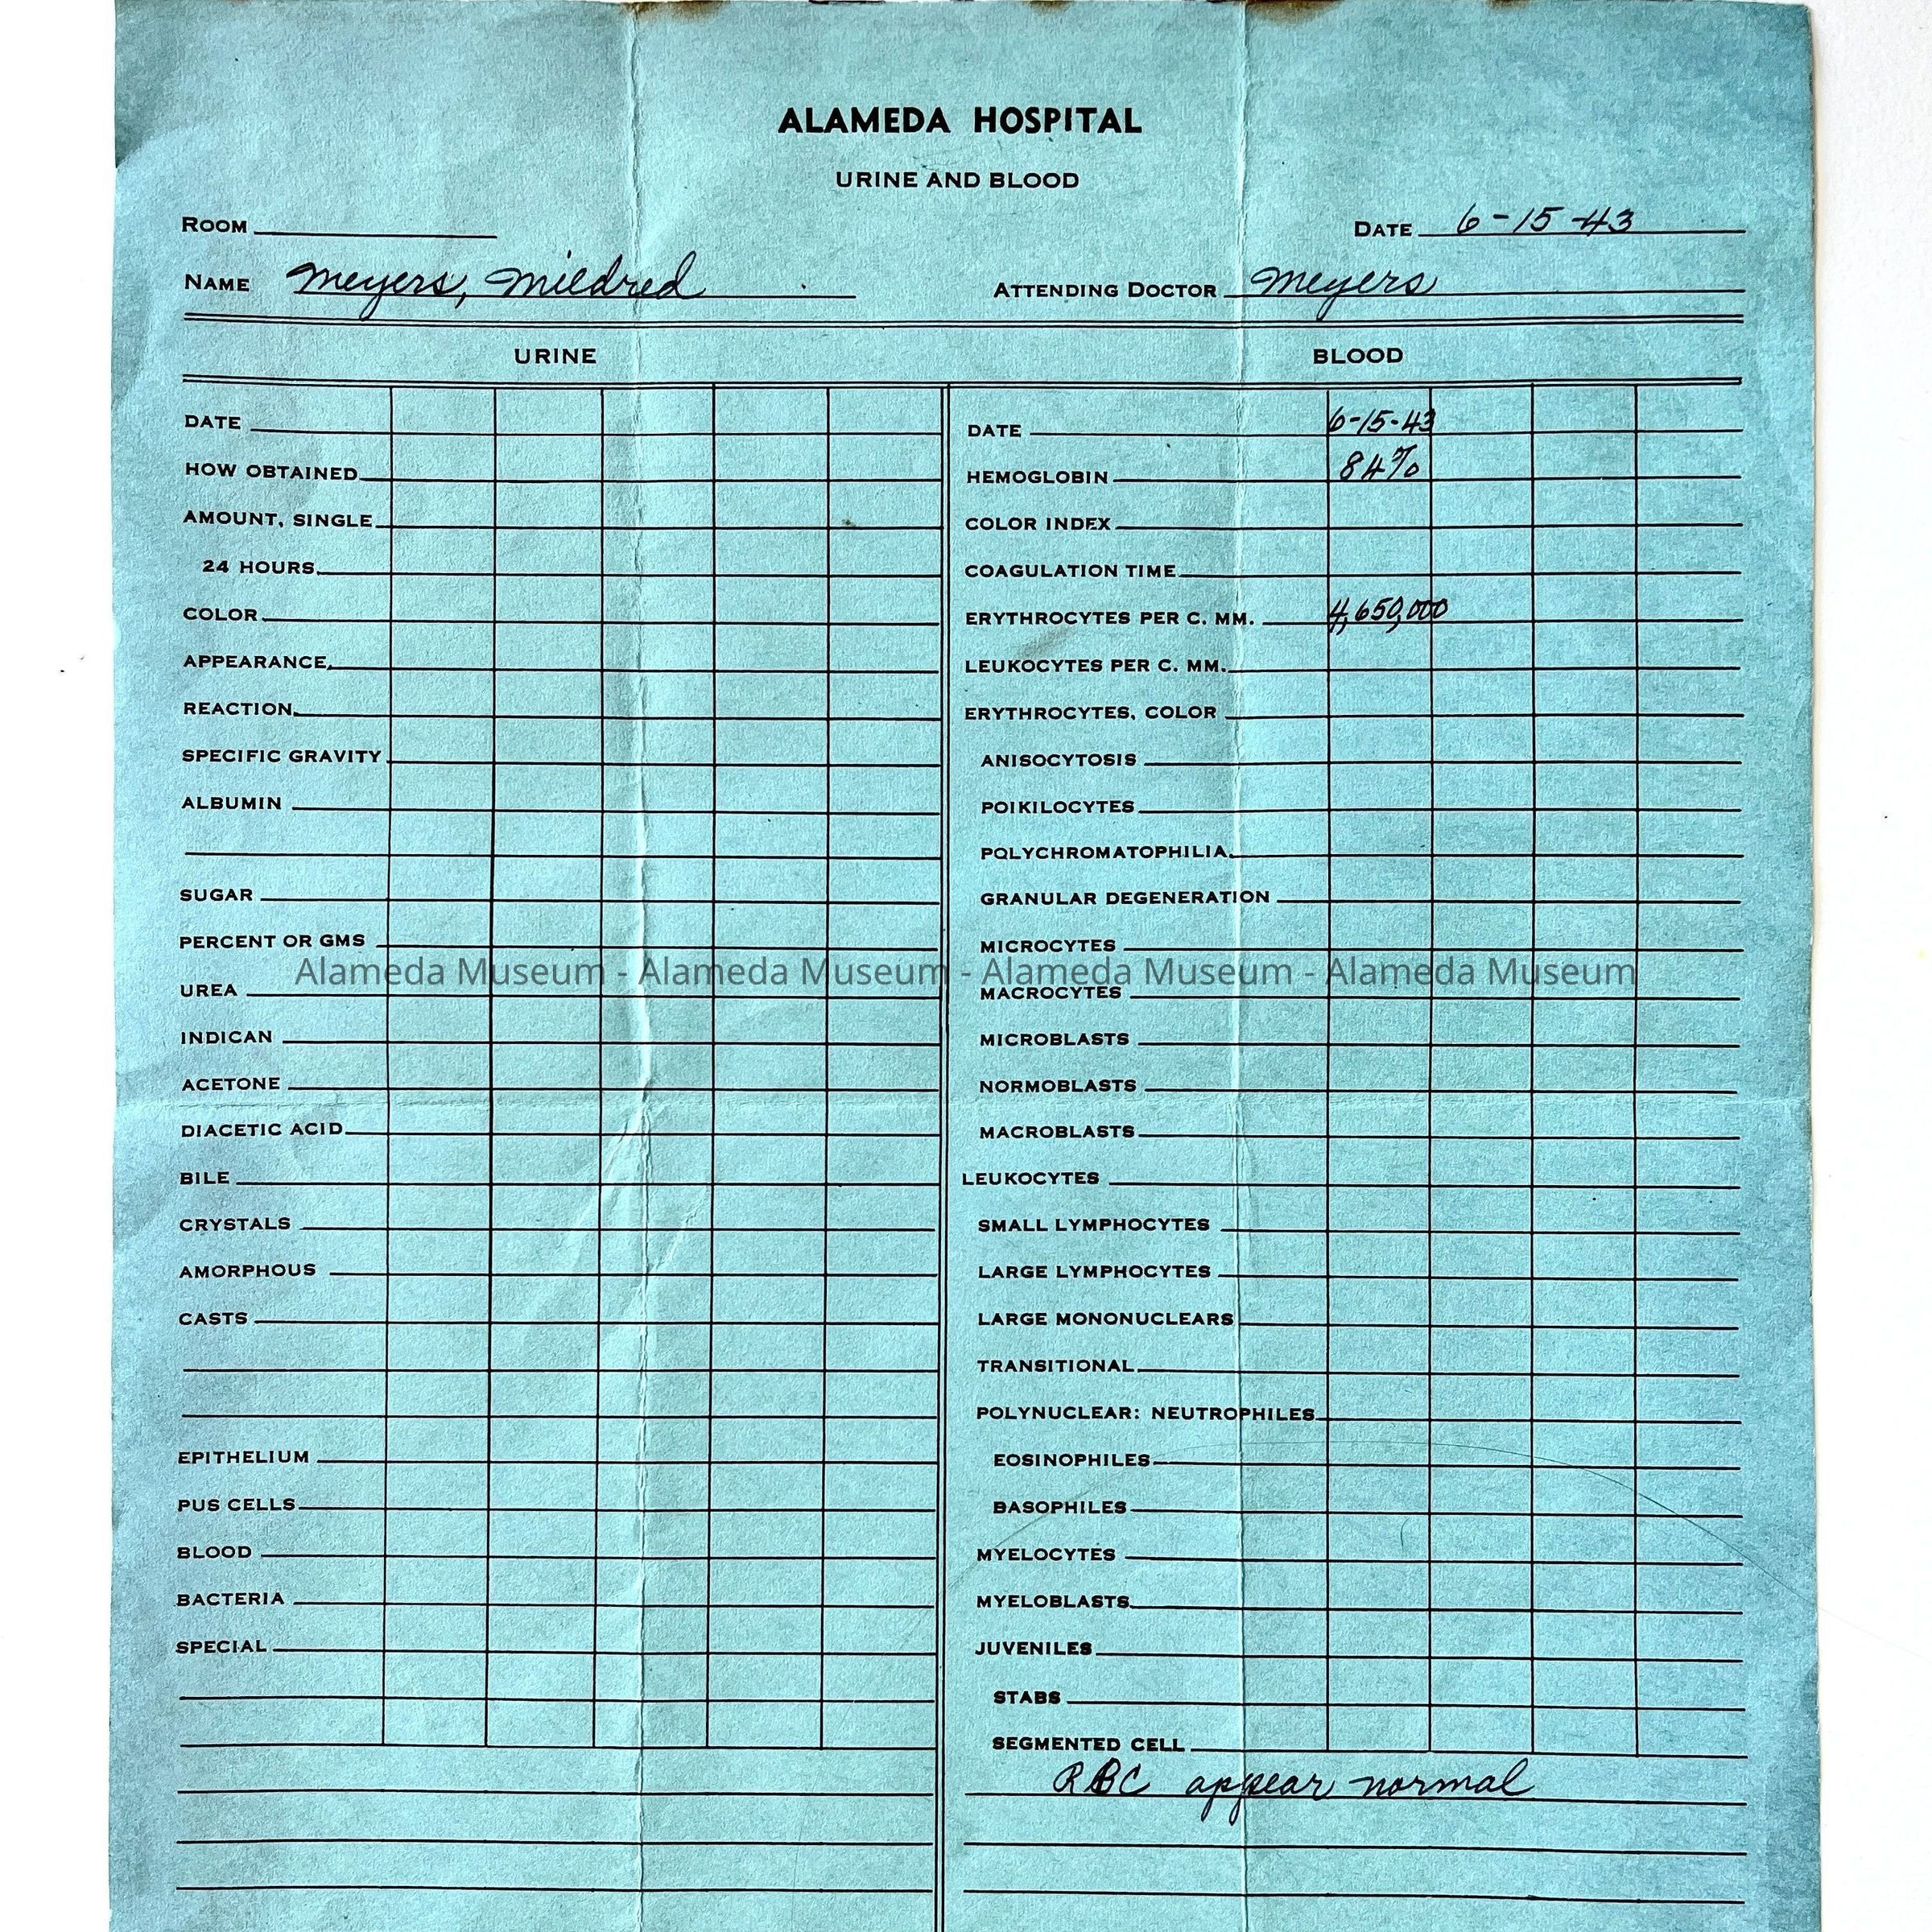 ALAMEDA HOSPITAL
URINE AND BLOOD
ROOM
DATE 6-15-43
NAME Meyers, Mildred
ATTENDING DOCTOR Meyers
URINE
DATE
HOW OBTAINED
AMOUNT, SINGLE
24 HOURS
COLOR
APPEARANCE
REACTION
SPECIFIC GRAVITY
ALBUMIN
SUGAR
PERCENT OR GMS
UREA
INDICAN
ACETONE
DIACETIC ACID
BILE
CRYSTALS
AMORPHOUS
CASTS
EPITHELIUM
PUS CELLS
BLOOD
BACTERIA
SPECIAL
BLOOD
DATE 6-15-43
HEMOGLOBIN 84%
COLOR INDEX
COAGULATION TIME
ERYTHROCYTES PER C. MM. 4,650,000
LEUKOCYTES PER C. MM.
ERYTHROCYTES, COLOR
ANISOCYTOSIS
POIKILOCYTES
POLYCHROMATOPHILIA
GRANULAR DEGENERATION
MICROCYTES
MACROCYTES
MICROBLASTS
NORMOBLASTS
MACROBLASTS
LEUKOCYTES
SMALL LYMPHOCYTES
LARGE LYMPHOCYTES
LARGE MONONUCLEARS
TRANSITIONAL
POLYNUCLEAR: NEUTROPHILES
EOSINOPHILES
BASOPHILES
MYELOCYTES
MYELOBLASTS
JUVENILES
STABS
SEGMENTED CELL
RBC appear normal
Alameda Museum - Alameda Museum - Alameda Museum - Alameda Museum